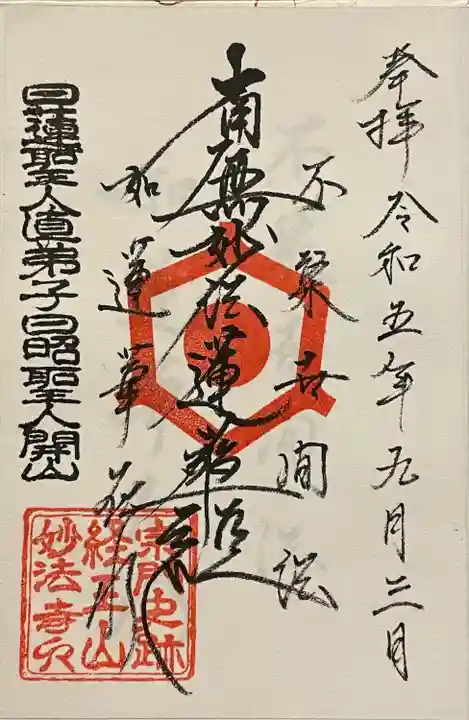 奉拝 令和五年九月三日
不染世間法
南無妙法蓮華経
如蓮華在水
日蓮聖人直弟子日昭聖人開山
宗門史跡
経王山
妙法寺印